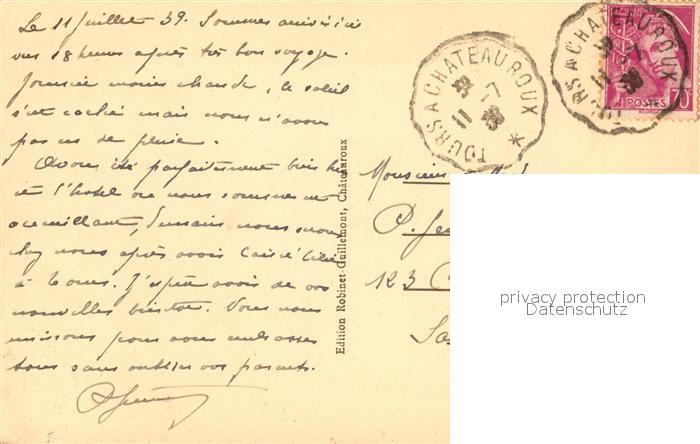 Le 11 Juillet 39. Sommes arrivés ici
vers 18 heures après très bon voyage.
Journée moins chaude, le soleil
s'est caché mais nous n'avons
pas eu de pluie.
Avons été parfaitement bien
à l'hotel où nous sommes
accueillant, demain nous
nous après avoir laissé
à Tours. J'espère avoir de vos
nouvelles bientôt. Vous nous
unissons pour vous embrasser
tous sans oublier vos parents.
Edition Robinet-Guillemont, Châteauroux
TOURS A CHATEAUROUX
11 -7
39
TOURS A CHATEAUROUX
11 -7
39
POSTES 70c
Monsieur
P.
123
privacy protection
Datenschutz